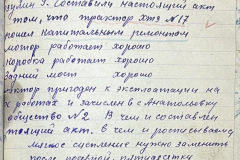 зулин У. Составили настоящий акт
том, что трактор ХТЗ №17
рошел капитальным ремонтом
мотор работает хорошо
коробка работает хорошо
задний мост хорошо
актор пригоден к эксплоатации на
х работах и зачислен в с Анатольевку
общество №2 В чем и составлен
тоящий акт. в чем и росписываемся
мягкое сцепление нужно заменить
после посевной пятидневки